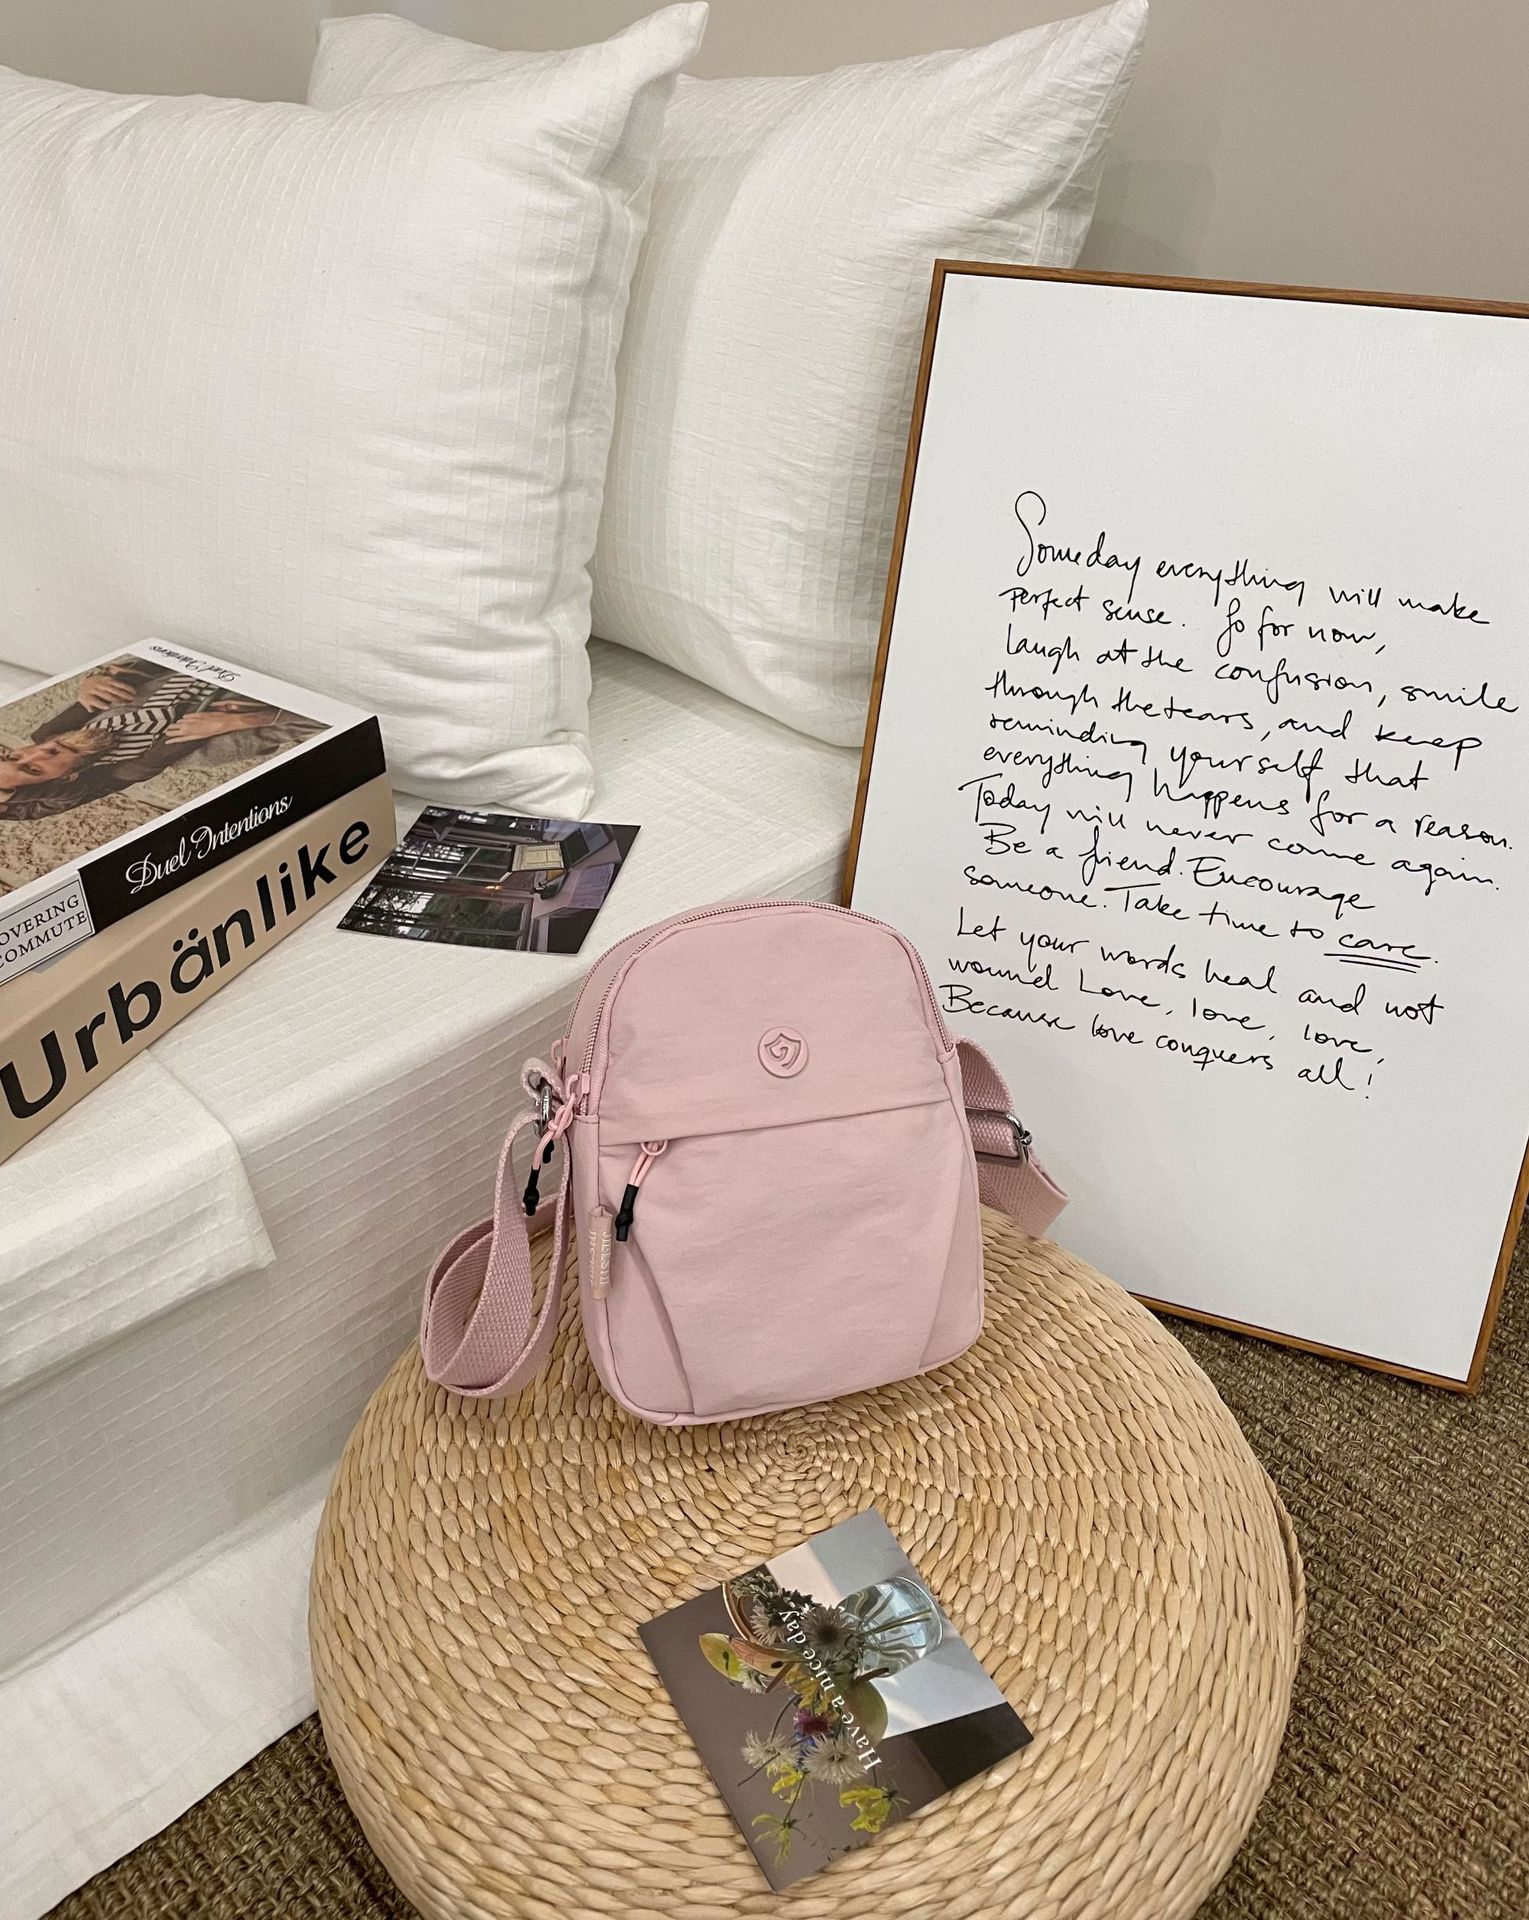 Someday everything will make
perfect sense. So for now,
laugh at the confusion, smile
through the tears, and keep
reminding yourself that
everything happens for a reason.
Today will never come again.
Be a friend. Encourage
someone. Take time to care.
Let your words heal and not
wound Love, love, love,
Because love conquers all!
Duel Intentions
Duel Intentions
OVERING
COMMUTE
Urbänlike
Have a nice day